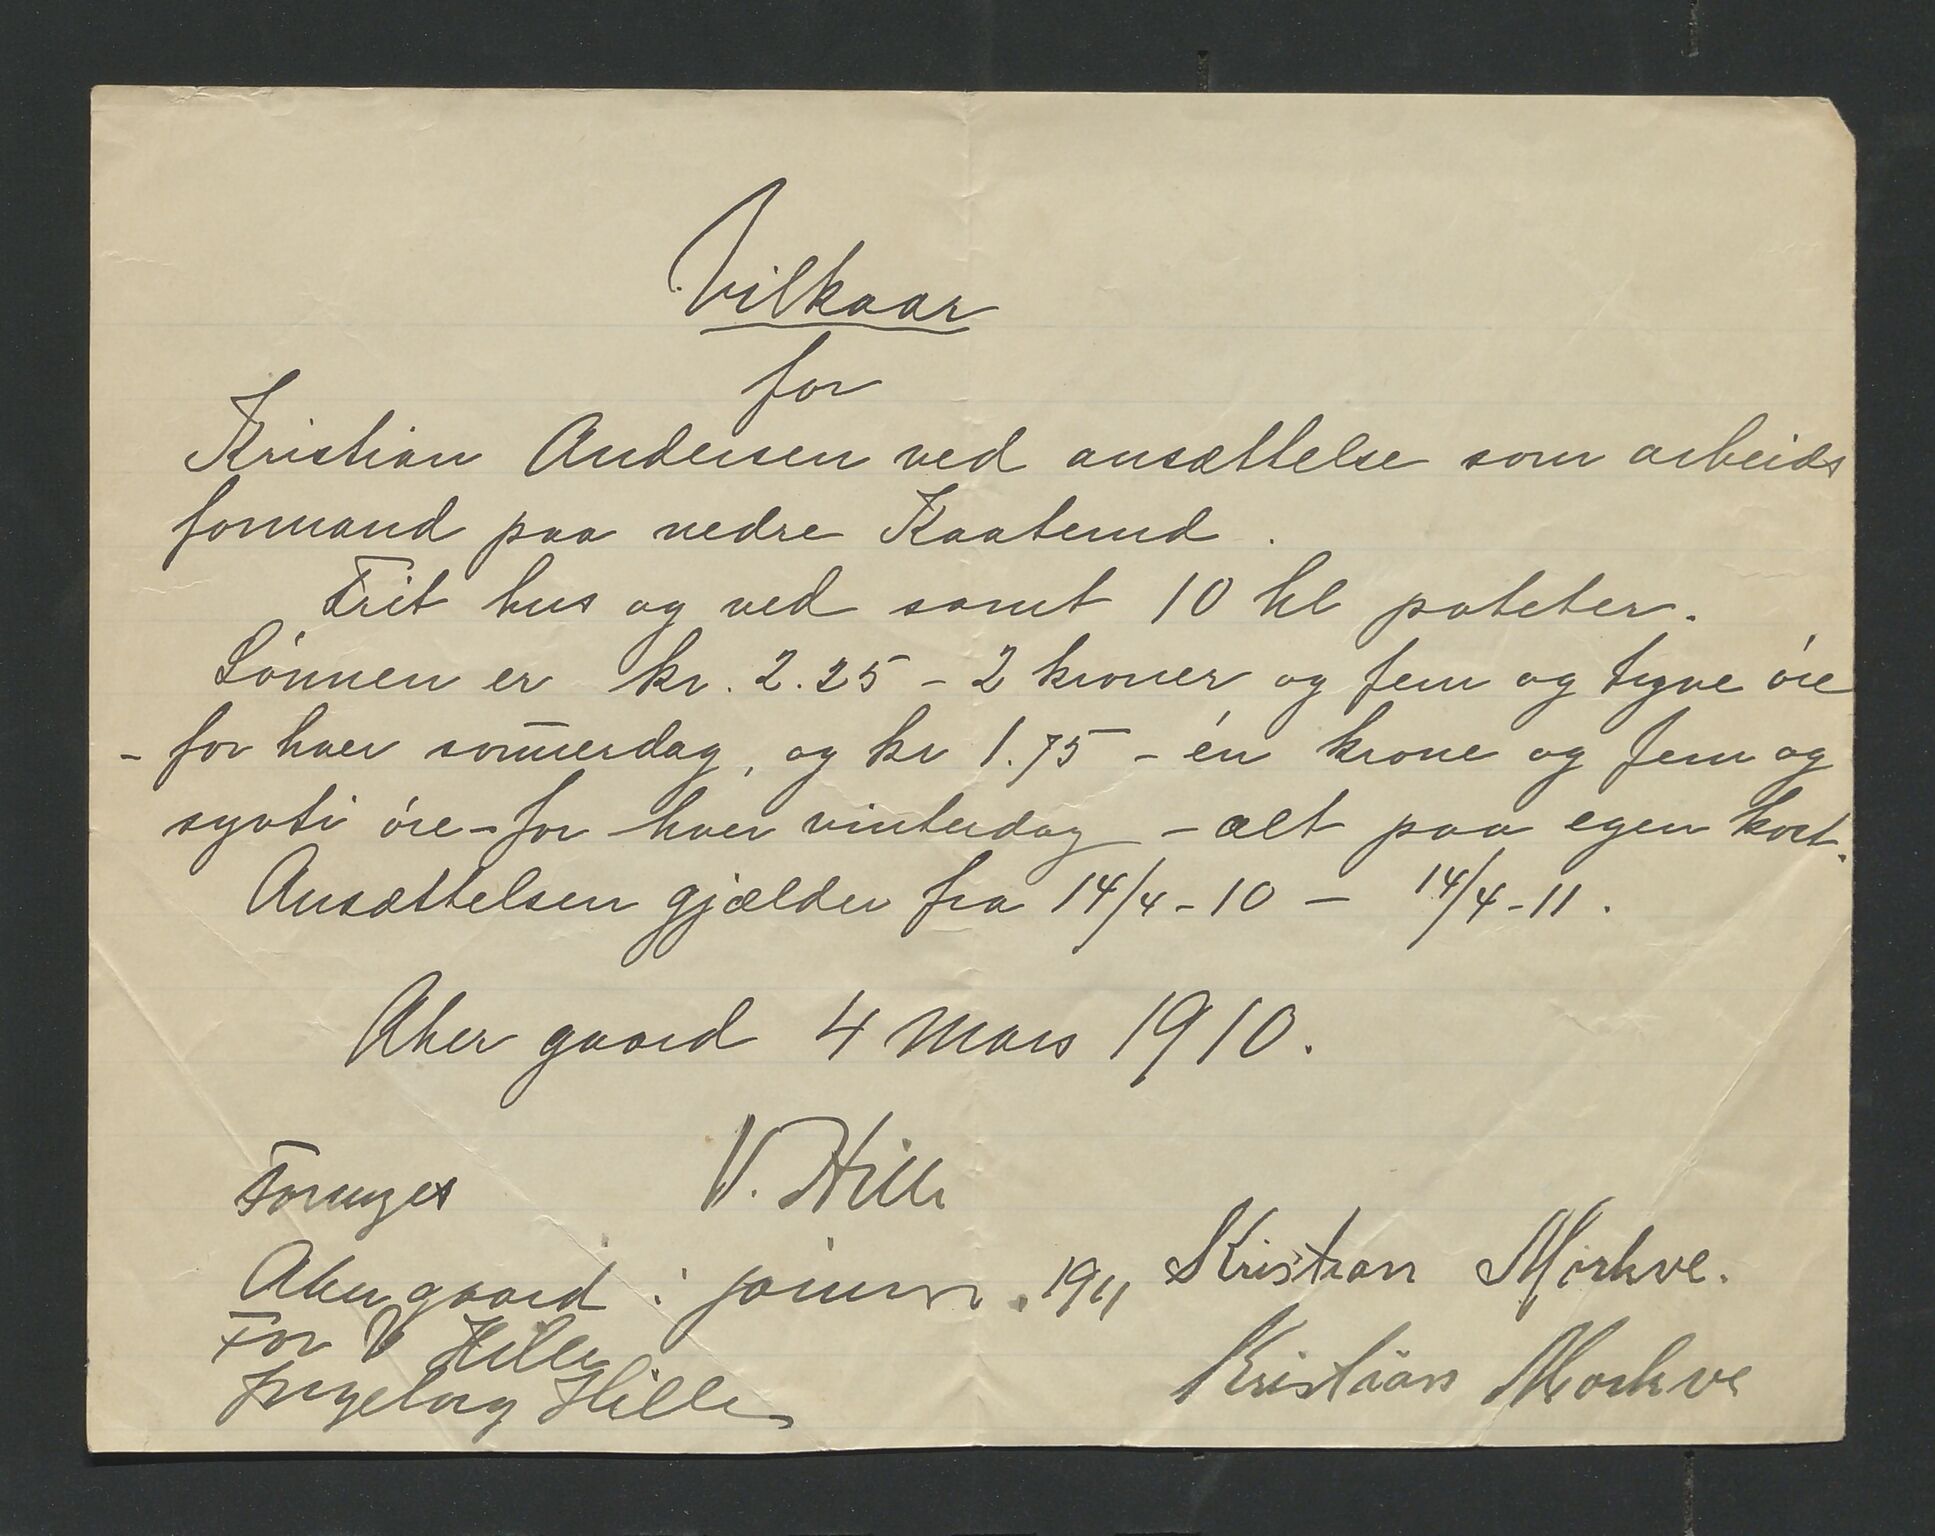 Vilkaar
for
Kristian Andersen ved ansættelse som arbeids
formand paa nedre Kaaterud.
Frit hus og ved samt 10 hl poteter.
Lönnen er kr. 2.25 - 2 kroner og fem og tyve öre
- for hver som̅erdag, og kr 1.75 - én krone og fem og
sytti öre - for hver vinterdag - alt paa egen kost.
Ansættelsen gjælder fra 14/4 - 10 - 14/4 - 11.
Aker gaard 4 Mars 1910.
V. Hille
Fornyes
Aker gaard i januar 1911
Kristian Morkve.
For V Hille
Ingeborg Hille
Kristian Morkve